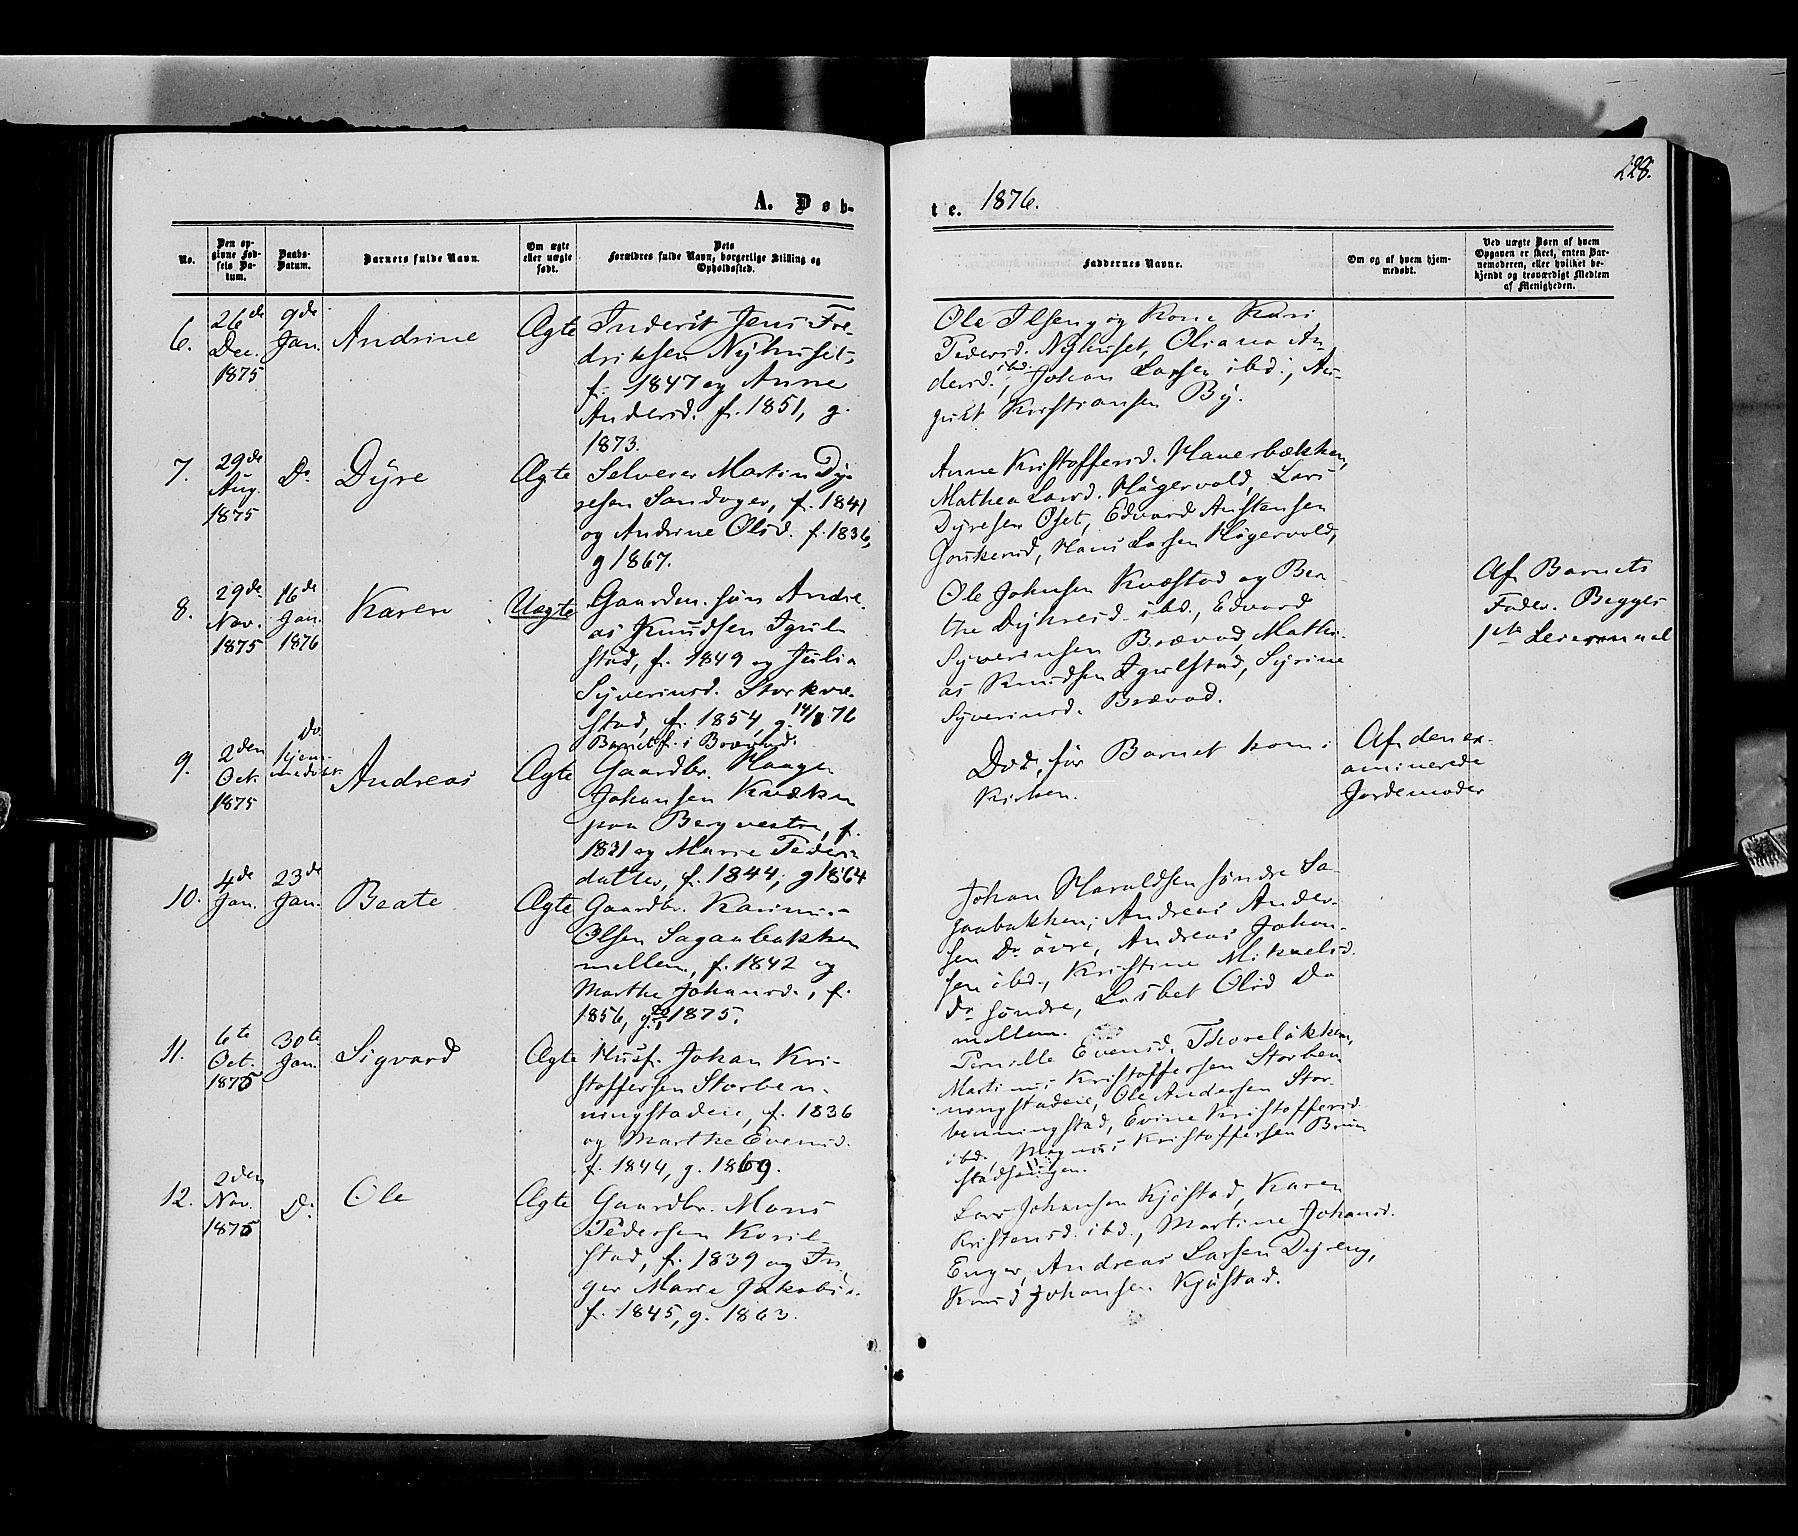 228.
A. Døb-
te. 1876.
No.
Den op-
givne Fød-
sels Da-
tum.
Daabs-
Datum.
Barnets fulde Navn.
Om ægte
eller uægte
født.
Dets
Forældres fulde Navn, borgerlige Stilling og
Opholdssted.
Faddernes Navne.
Om og af hvem hjem-
medøbt.
Ved uægte Børn af hvem
Opgaven er skeet, enten Bar-
nemoderen, eller hvilket be-
kjendt og troværdigt Medlem
af Menigheden.
6.
26de
Dec.
1875
9de
Jan.
Andrine
Ægte
Inderst Jens Fre-
driksen Nyhuset,
f. 1847 og Anne
Andersd. f. 1851, g.
1873.
Ole Ilseng og Kone Kari
Pedersd. Nyhuset, Oliana An-
dersd. ibd., Johan Larsen ibd., Au-
gust Kristiansen By.
7.
29de
Aug.
1875
Do
Dyre
Ægte
Selveier Martin Dy-
resen Sandager, f. 1841
og Andrine Olsd. f. 1836,
g 1867.
Anne Kristoffersd. Haverbækken,
Mathea Larsd. Hagervold, Lars
Dyresen Oset, Edvard Austensen
Hans Larsen Hagervold,
8.
29de
Nov.
1875
16de
Jan.
1876
Karen
Uægte
Gaardm. søn Andre-
as Knudsen Igul-
stad, f. 1849 og Julia
Syverinsd. Storkve-
stad, f. 1854, g. 14/8 76
Barnet f. i Brævad.
Ole Johnsen Kvæstad og Bea-
the Dyhresd. ibd., Edvard
Syverinsen Brævad, Mathi-
as Knudsen Igulstad, Syrine
Syverinsd. Brævad.
Af Barnets
Fader. Begges
1ste Leiermaal
9.
2den
Oct.
1875
Do
hjem-
medøbt.
Andreas
Ægte
Gaardbr. Haagen
Johansen Kvæken
paa Berg vestre, f.
1831 og Marie Peders-
datter, f. 1844, g 1864
Død, før Barnet kom i
Kirken.
Af den ex-
aminerede
Jordemoder
10.
4de
Jan.
23de
Jan.
Beate
Ægte
Gaardbr. Karinus
Olsen Sagaabakken
mellem, f. 1842 og
Marthe Johansd., f.
1856, g. 1875.
Johan Haraldsen søndre Sa-
gaabakken, Andreas Ander-
sen Do øvre, Andreas Johan-
sen ibd., Kristine Mikaelsd.
Do søndre, Lisbet Olsd Do
mellem.
11.
6te
Oct.
1875
30te
Jan.
Sigvard
Ægte
Husf. Johan Kri-
stoffersen Storben-
ningstadeie, f. 1836
og Marthe Evensd.
f. 1844, g. 1869.
Pernille Evensd. Thoreløkken,
Martinus Kristoffersen Storben-
ningstadeie, Ole Andersen Stor-
benningstad, Evine Kristoffersd.
ibd., Magnus Kristoffersen Brun-
stadhaugen.
12.
2den
Nov.
1875
Do
Ole
Ægte
Gaardbr. Mons
Pedersen Korsl-
stad, f. 1839 og In-
ger Marie Jakobsd.
f. 1845, g. 1863.
Lars Johansen Kjøstad, Karen
Kristensd. ibd., Martine Johansd.
Enger, Andreas Larsen Dyreng,
Knud Johansen Kjøstad.